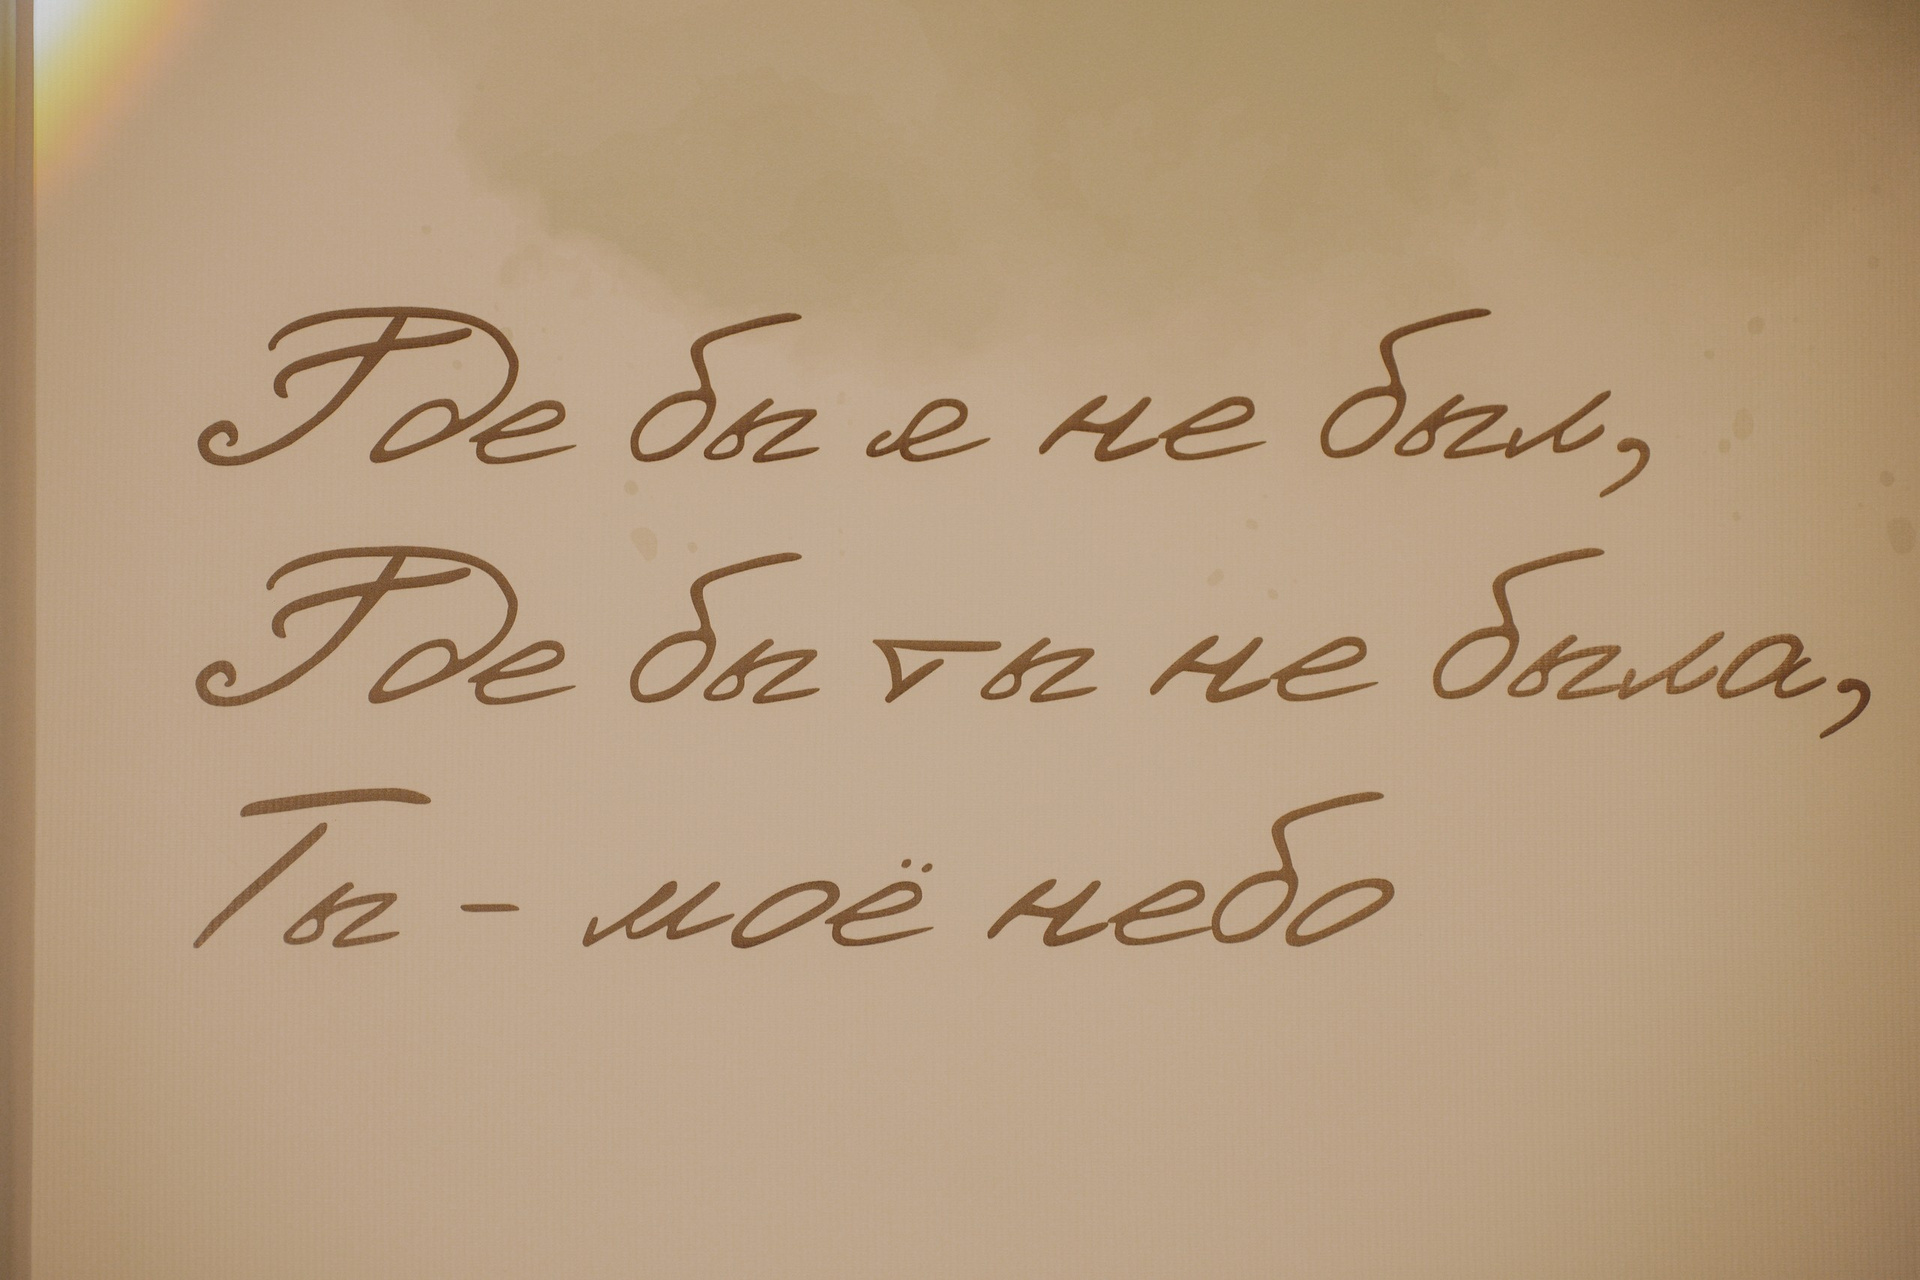 Где бы я не был,
Где бы ты не была,
Ты - моё небо